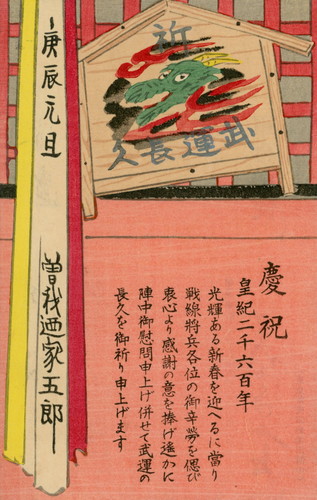 祈
武運長久
庚辰元旦
曽我廼家五郎
慶祝
皇紀二千六百年
光輝ある新春を迎へるに當り
戦線將兵各位の御辛勞を偲び
衷心より感謝の意を捧げ遙かに
陣中御慰問申上げ併せて武運の
長久を御祈り申上げます